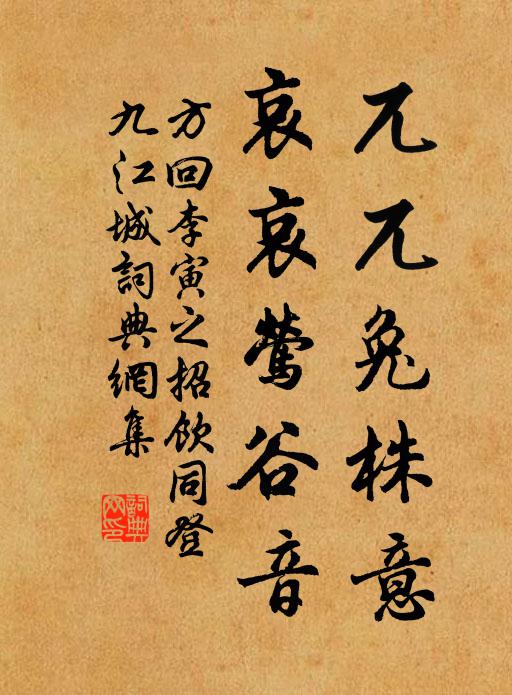 兀兀兔株意
哀哀鶯谷音
方回李寅之招飲同登
九江城詞典網集
詞典
网印